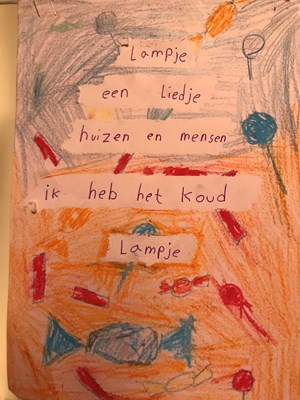 Lampje
een liedje
huizen en mensen
ik heb het koud
Lampje